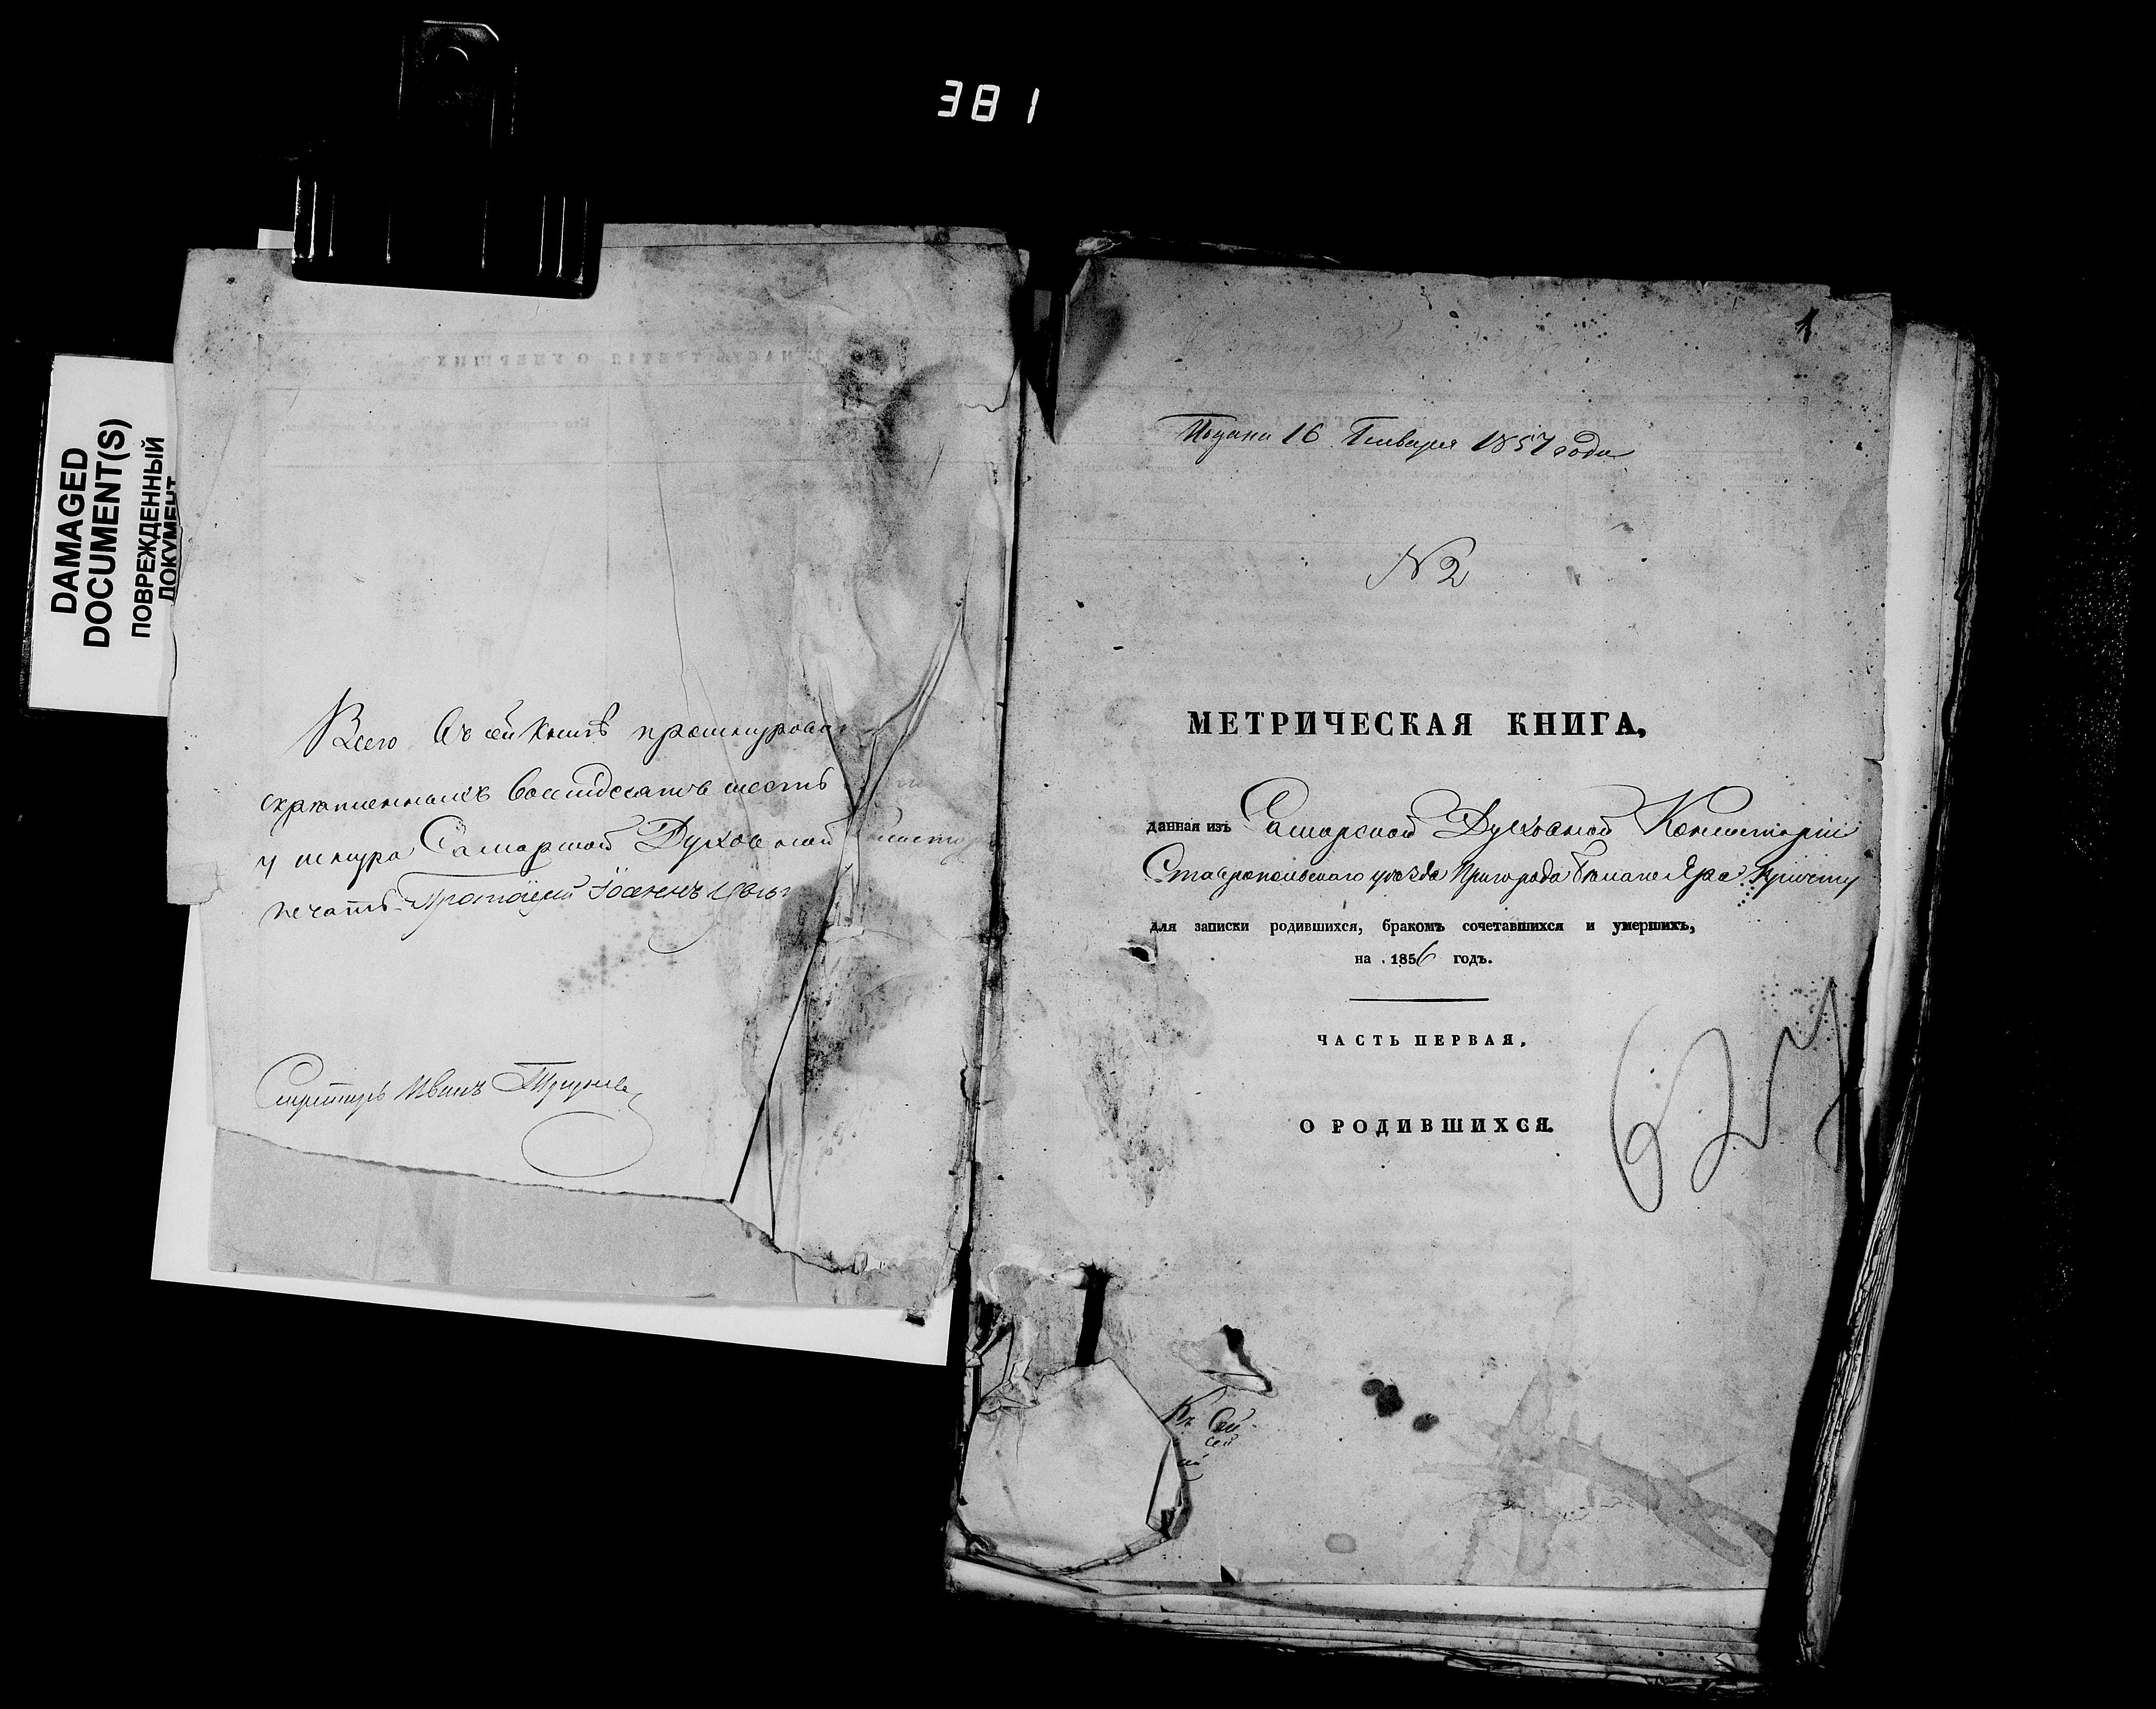 381
DAMAGED
DOCUMENT(S)
ПОВРЕЖДЕННЫЙ
ДОКУМЕНТ
Всего въ сей книгѣ прошнурован
скрѣпленныхъ восемдесятъ шесть
у шнура Самарской Духовной
печать. Протоіерей Іоаннъ
Секретарь Иванъ
1
Подана 16 Генваря 1857 года
№ 2
МЕТРИЧЕСКАЯ КНИГА,
данная изъ Самарской Духовной Консисторіи
Ставропольскаго уѣзда Пригорода Яра причту
для записки родившихся, бракомъ сочетавшихся и умершихъ,
на 1856 годъ.
ЧАСТЬ ПЕРВАЯ.
О РОДИВШИХСЯ.
Къ Сей
сей